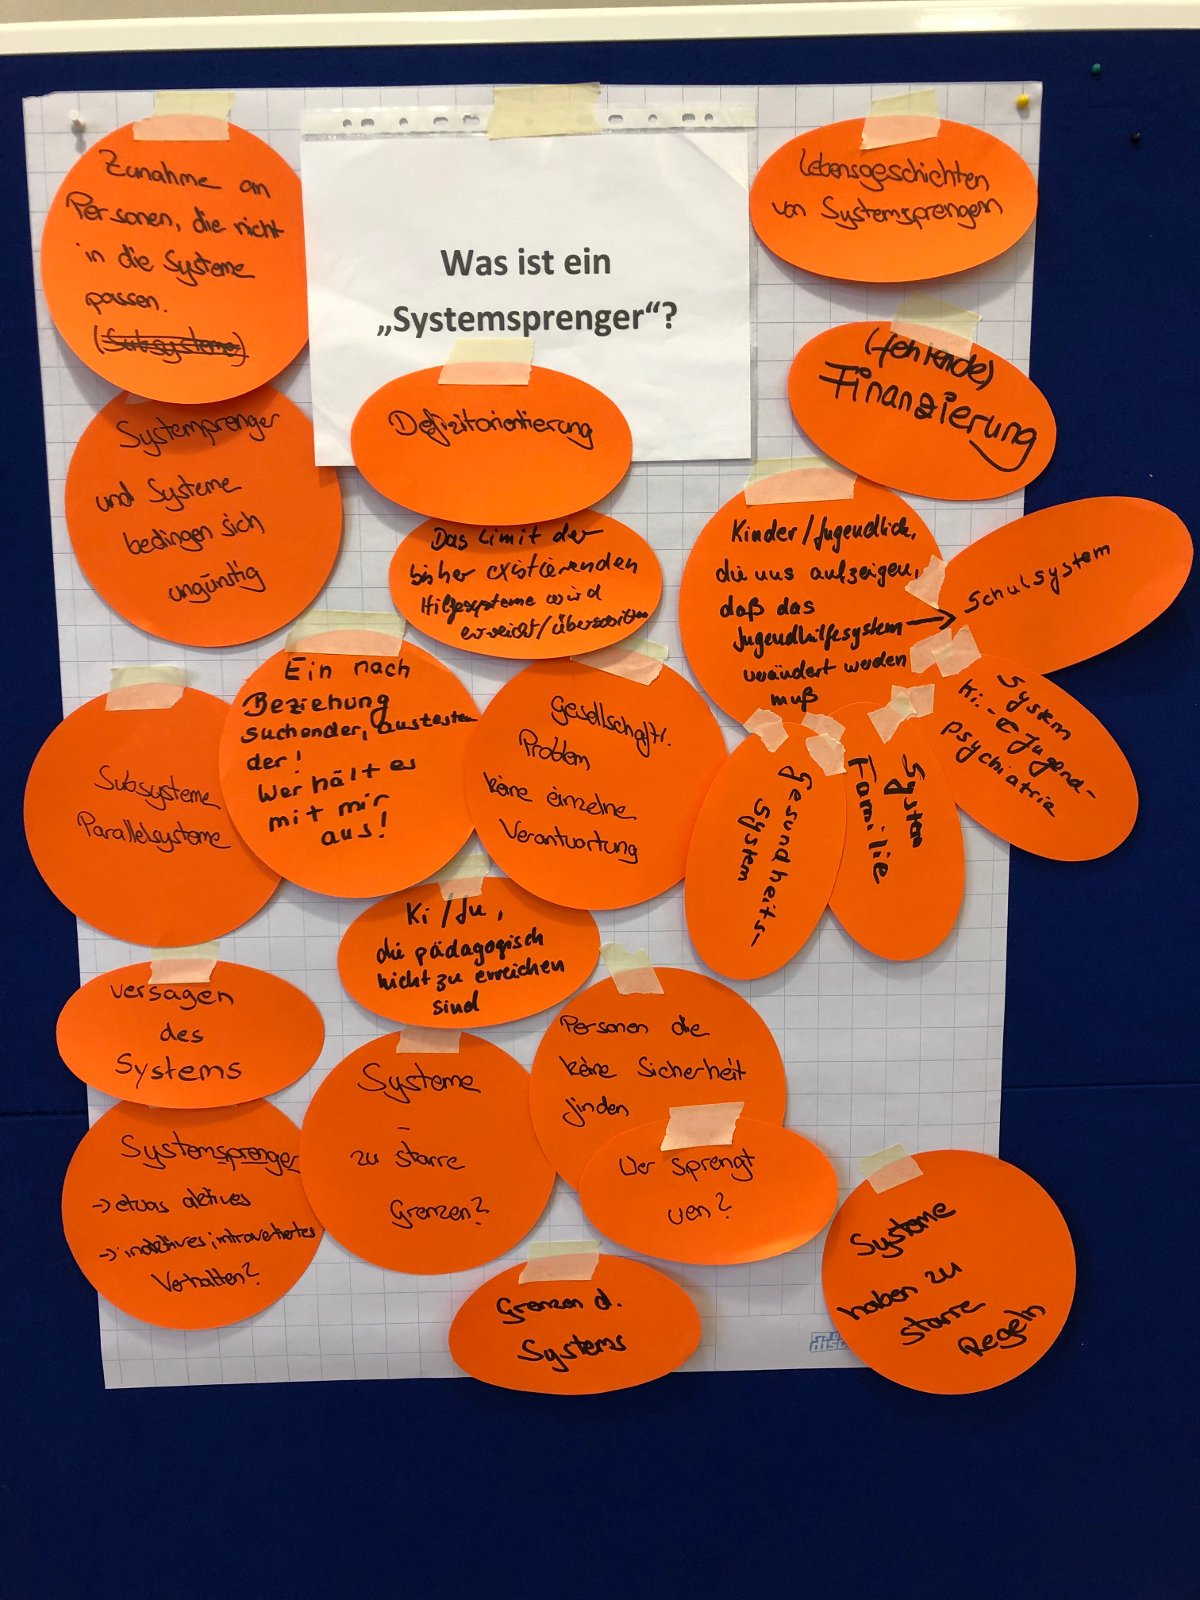 Was ist ein
„Systemsprenger“?
Zunahme an
Personen, die nicht
in die Systeme
passen.
(Subsysteme)
Lebensgeschichten
von Systemsprengern
(fehlende)
Finanzierung
Defizitorientierung
Systemprenger
und Systeme
bedingen sich
ungünstig
Das Limit der
bisher existierenden
Hilfesysteme wird
erreicht/überschritten
Kinder/Jugendliche,
die uns aufzeigen,
daß das
Jugendhilfesystem
verändert werden
muß
Schulsystem
System
Ki.- & Jugend-
psychiatrie
System
Familie
Gesundheits-
System
Ein nach
Beziehung
suchender, austesten
der!
Wer hält es
mit mir
aus!
Gesellschaftl.
Problem
keine einzelne
Verantwortung
Subsysteme
Parallelsysteme
Ki/Ju,
die pädagogisch
nicht zu erreichen
sind
Versagen
des
Systems
Personen die
keine Sicherheit
finden
Systeme
-
zu starre
Grenzen?
Systemsprenger
→ etwas aktives
→ inaktives, introvertiertes
Verhalten?
Wer sprengt
wen?
Systeme
haben zu
starre
Regeln
Grenzen d.
Systems